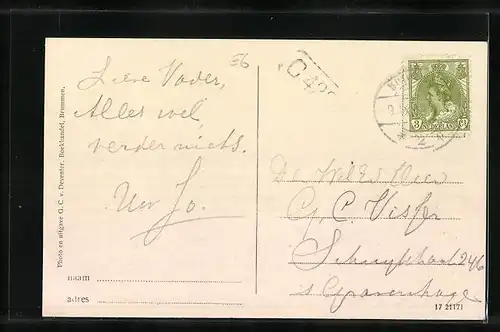 Photo en uitgave G. C. v. Deventer, Boekhandel, Brummen.
Lieve Vader,
Alles wel
verder niets.
Uw Jo.
naam
adres
56
3 Ct
NEDERLAND
De WelEd Heer
C. Visser
246
's Gravenhage
17 21171